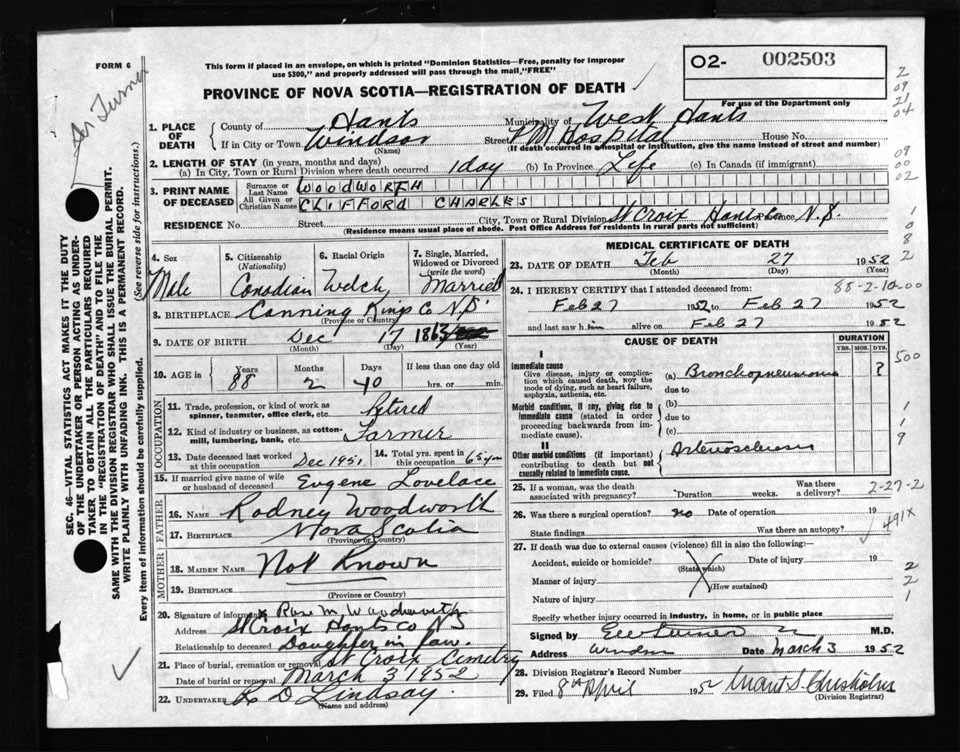 FORM 6
Dr Turner
This form if placed in an envelope, on which is printed "Dominion Statistics—Free, penalty for improper
use $300," and properly addressed will pass through the mail "FREE"
O2- 002503
PROVINCE OF NOVA SCOTIA—REGISTRATION OF DEATH
For use of the Department only
2
09
21
04
09
00
02
1
0
8
2
1. PLACE OF DEATH
County of Hants Municipality of West Hants
If in City or Town Windsor Street P M Hospital House No.
(Name) (If death occurred in a hospital or institution, give the name instead of street and number)
2. LENGTH OF STAY (in years, months and days)
(a) In City, Town or Rural Division where death occurred 1 day (b) In Province Life (c) In Canada (if immigrant)
3. PRINT NAME OF DECEASED
Surname or Last Name WOODWORTH
All Given or Christian Names CLIFFORD CHARLES
RESIDENCE No. Street City, Town or Rural Division St Croix Hants Co Province N.S.
(Residence means usual place of abode. Post Office Address for residents in rural parts not sufficient)
4. Sex
Male
5. Citizenship
(Nationality)
Canadian
6. Racial Origin
Welch
7. Single, Married,
Widowed or Divorced
(write the word)
Married
8. BIRTHPLACE Canning Kings Co N.S.
(Province or Country)
9. DATE OF BIRTH Dec 17 1863
(Month) (Day) (Year)
10. AGE in
Years Months Days If less than one day old
88 2 10 hrs. or min.
OCCUPATION
11. Trade, profession, or kind of work as
spinner, teamster, office clerk, etc. Retired
12. Kind of industry or business, as cotton-
mill, lumbering, bank, etc. Farmer
13. Date deceased last worked
at this occupation Dec 1951
14. Total yrs. spent in
this occupation 65 yrs
15. If married give name of wife
or husband of deceased Eugene Lovelace
FATHER
16. NAME Rodney Woodworth
17. BIRTHPLACE Nova Scotia
(Province or Country)
MOTHER
18. MAIDEN NAME Not Known
19. BIRTHPLACE
(Province or Country)
20. Signature of informant x Rose M. Woodworth
Address St Croix Hants Co N S
Relationship to deceased Daughter in law.
21. Place of burial, cremation or removal St Croix Cemetry
Date of burial or removal March 3 1952
22. UNDERTAKER R D Lindsay.
(Name and address)
MEDICAL CERTIFICATE OF DEATH
23. DATE OF DEATH Feb 27 1952
(Month) (Day) (Year)
24. I HEREBY CERTIFY that I attended deceased from: 88-2-10-00
Feb 27 1952 to Feb 27 1952
and last saw him alive on Feb 27 1952
CAUSE OF DEATH
DURATION
YRS. MOS. DYS.
I
Immediate cause
Give disease, injury or complica-
tion which caused death, NOT the
mode of dying, such as heart failure,
asphyxia, asthenia, etc.
(a) Bronchopneumonia ?
due to
500
Morbid conditions, if any, giving rise to
immediate cause (stated in order
proceeding backwards from im-
mediate cause).
(b)
due to
(c)
1
1
9
II
Other morbid conditions (if important)
contributing to death but not
causally related to immediate cause.
Arteriosclerosis
25. If a woman, was the death
associated with pregnancy? Duration weeks. Was there
a delivery?
2-27-2
26. Was there a surgical operation? no Date of operation 19
State findings Was there an autopsy?
491X
27. If death was due to external causes (violence) fill in also the following:—
Accident, suicide or homicide? Date of injury 19
(State which)
Manner of injury (How sustained)
Nature of injury
2
2
1
Specify whether injury occurred in industry, in home, or in public place
Signed by M.D.
Address Windsor Date March 3 1952
28. Division Registrar's Record Number
29. Filed 8th April 1952 Chisholm
(Division Registrar)
SEC. 46—VITAL STATISTICS ACT MAKES IT THE DUTY
OF THE UNDERTAKER OR PERSON ACTING AS UNDER-
TAKER TO OBTAIN ALL THE PARTICULARS REQUIRED
IN THE "REGISTRATION OF DEATH" AND TO FILE THE
SAME WITH THE DIVISION REGISTRAR WHO SHALL ISSUE THE BURIAL PERMIT.
WRITE PLAINLY WITH UNFADING INK. THIS IS A PERMANENT RECORD.
Every item of information should be carefully supplied. (See reverse side for instructions.)